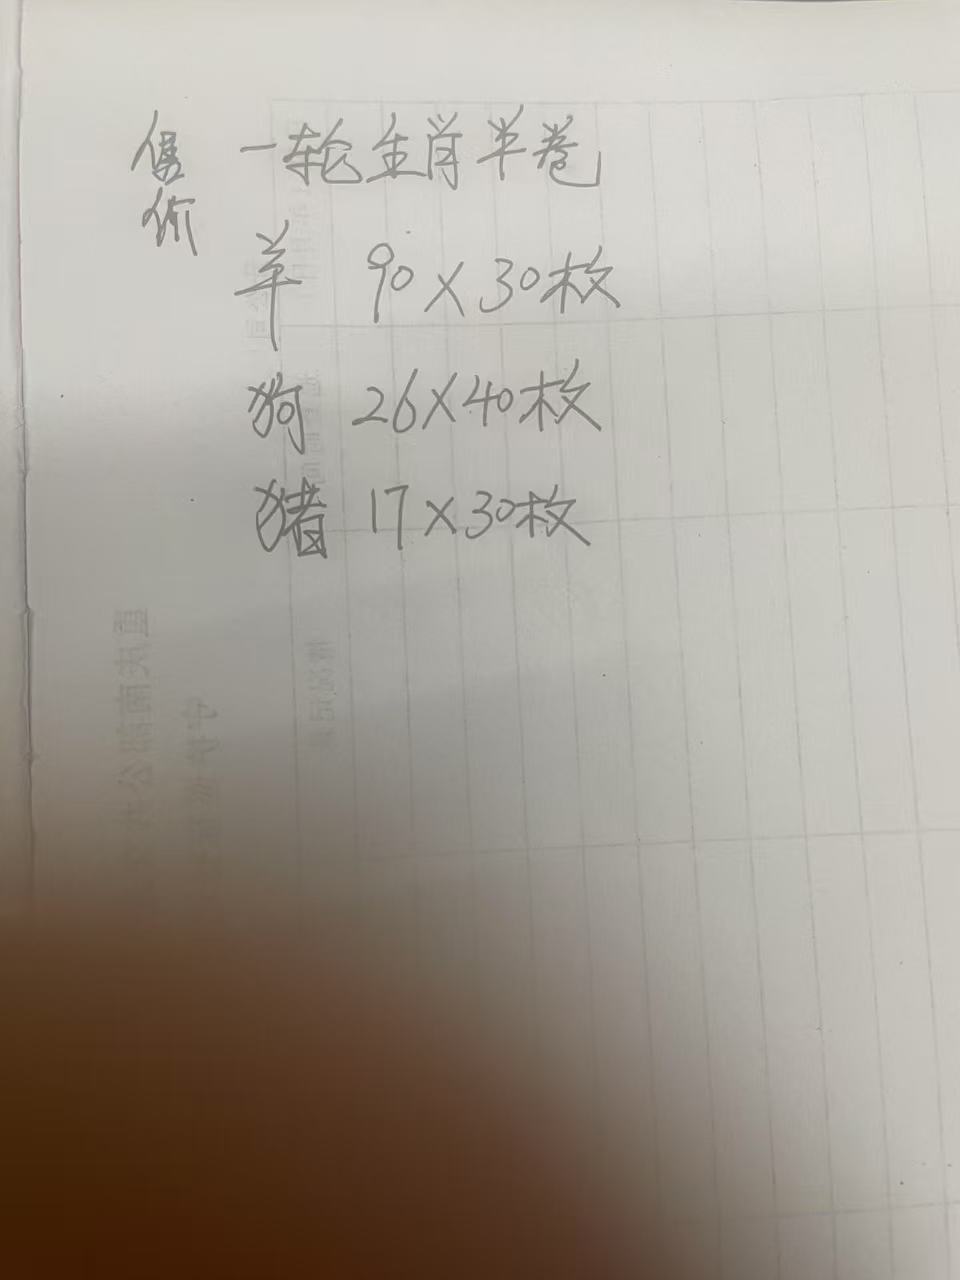 售价
一轮生肖半卷
羊 90×30枚
狗 26×40枚
猪 17×30枚